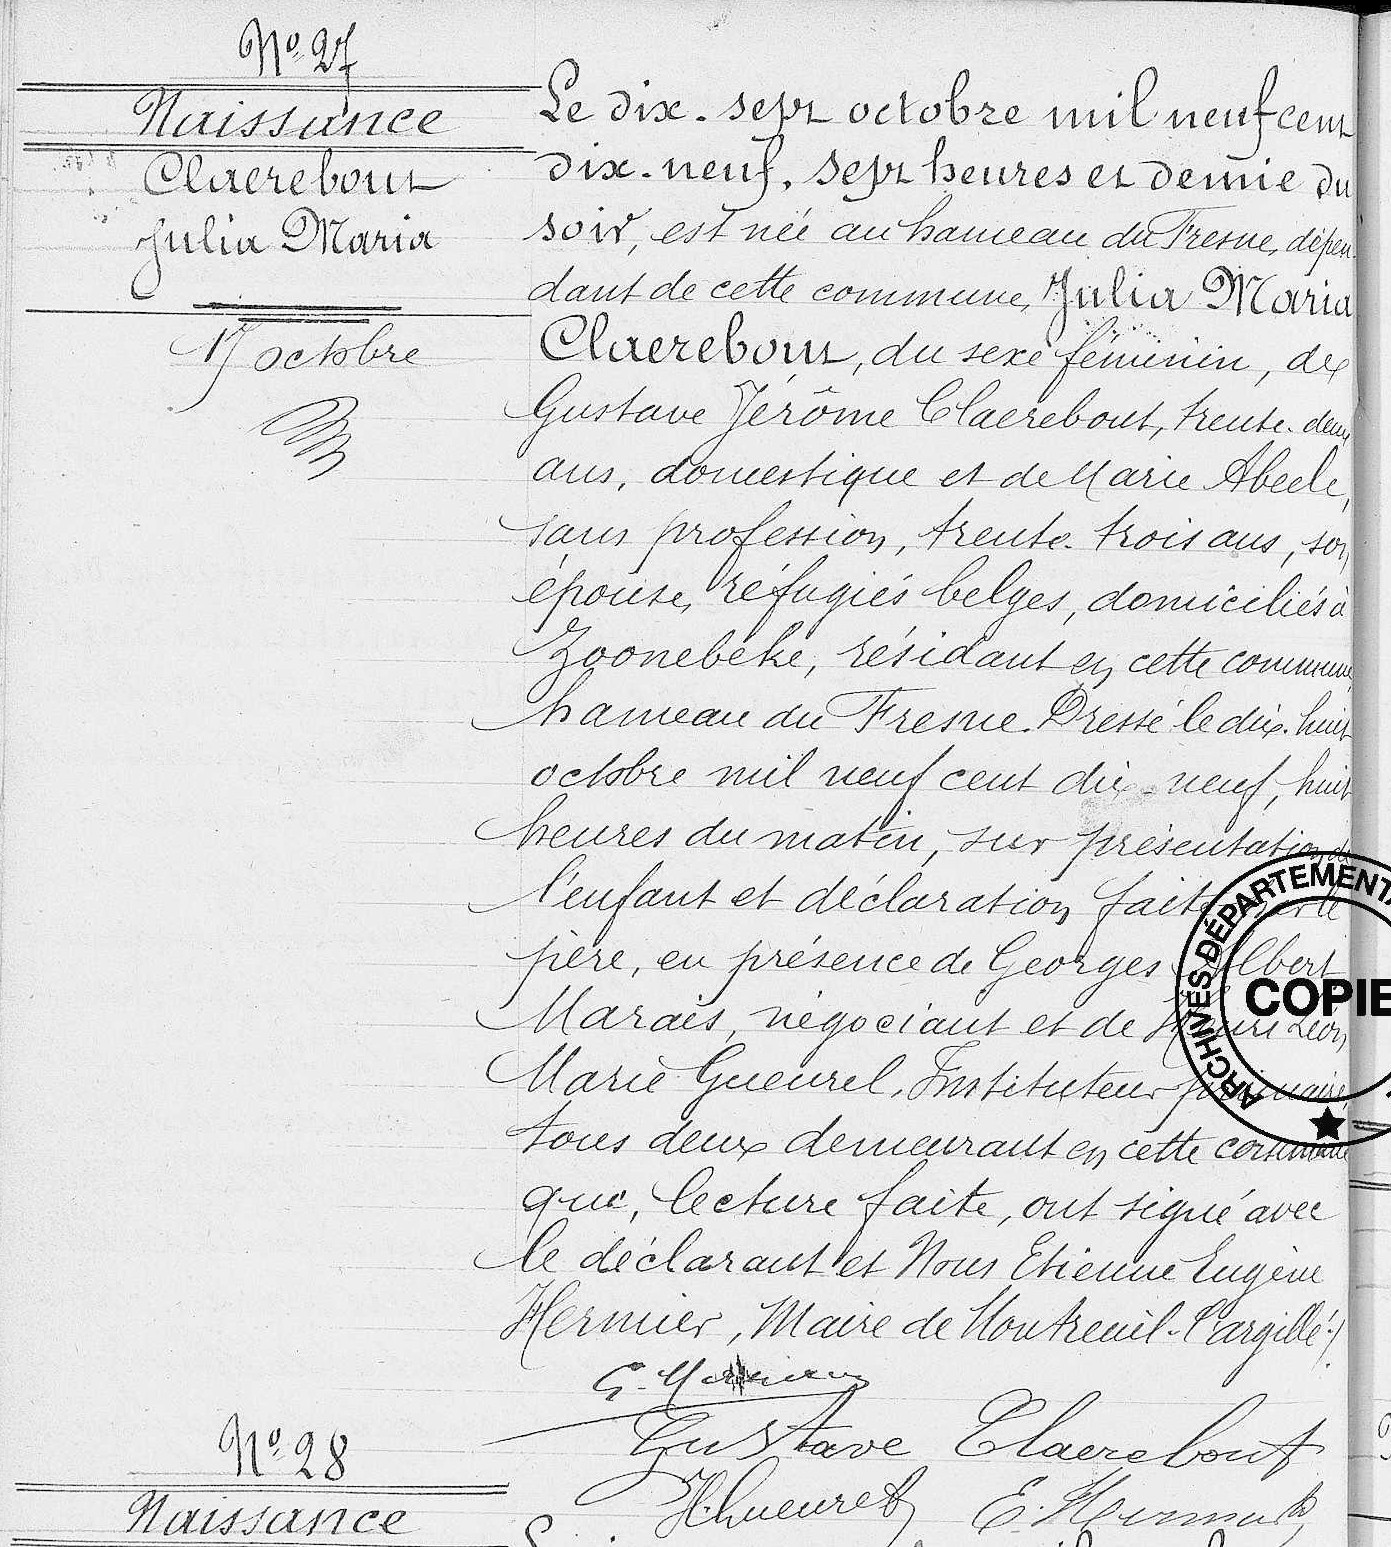 N° 27
Naissance
Claerebout
Julia Maria
17 octobre
Le dix-sept octobre mil neuf cent
dix-neuf, sept heures et demie du
soir, est née au hameau du Fresne, dépen
dant de cette commune, Julia Maria
Claerebout, du sexe féminin, de
Gustave Jérôme Claerebout, trente-deux
ans, domestique et de Marie Abeele,
sans profession, trente-trois ans, son
épouse, réfugiés belges, domiciliés à
Zoonebeke, résidant en cette commune,
hameau du Fresne. Dressé le dix-huit
octobre mil neuf cent dix-neuf, huit
heures du matin, sur présentation de
l'enfant et déclaration faite par le
père, en présence de Georges Albert
Marais, négociant et de Henri Léon
Marie Gueurel, Instituteur primaire,
tous deux demeurant en cette commune
que, lecture faite, ont signé avec
le déclarant et Nous Etienne Eugène
Hermier, Maire de Montreuil-l'argillé ./.
G. Marais
Gustave Claerebout
H. Gueurel E. Hermier
ARCHIVES DÉPARTEMENTA
COPIE
N° 28
Naissance